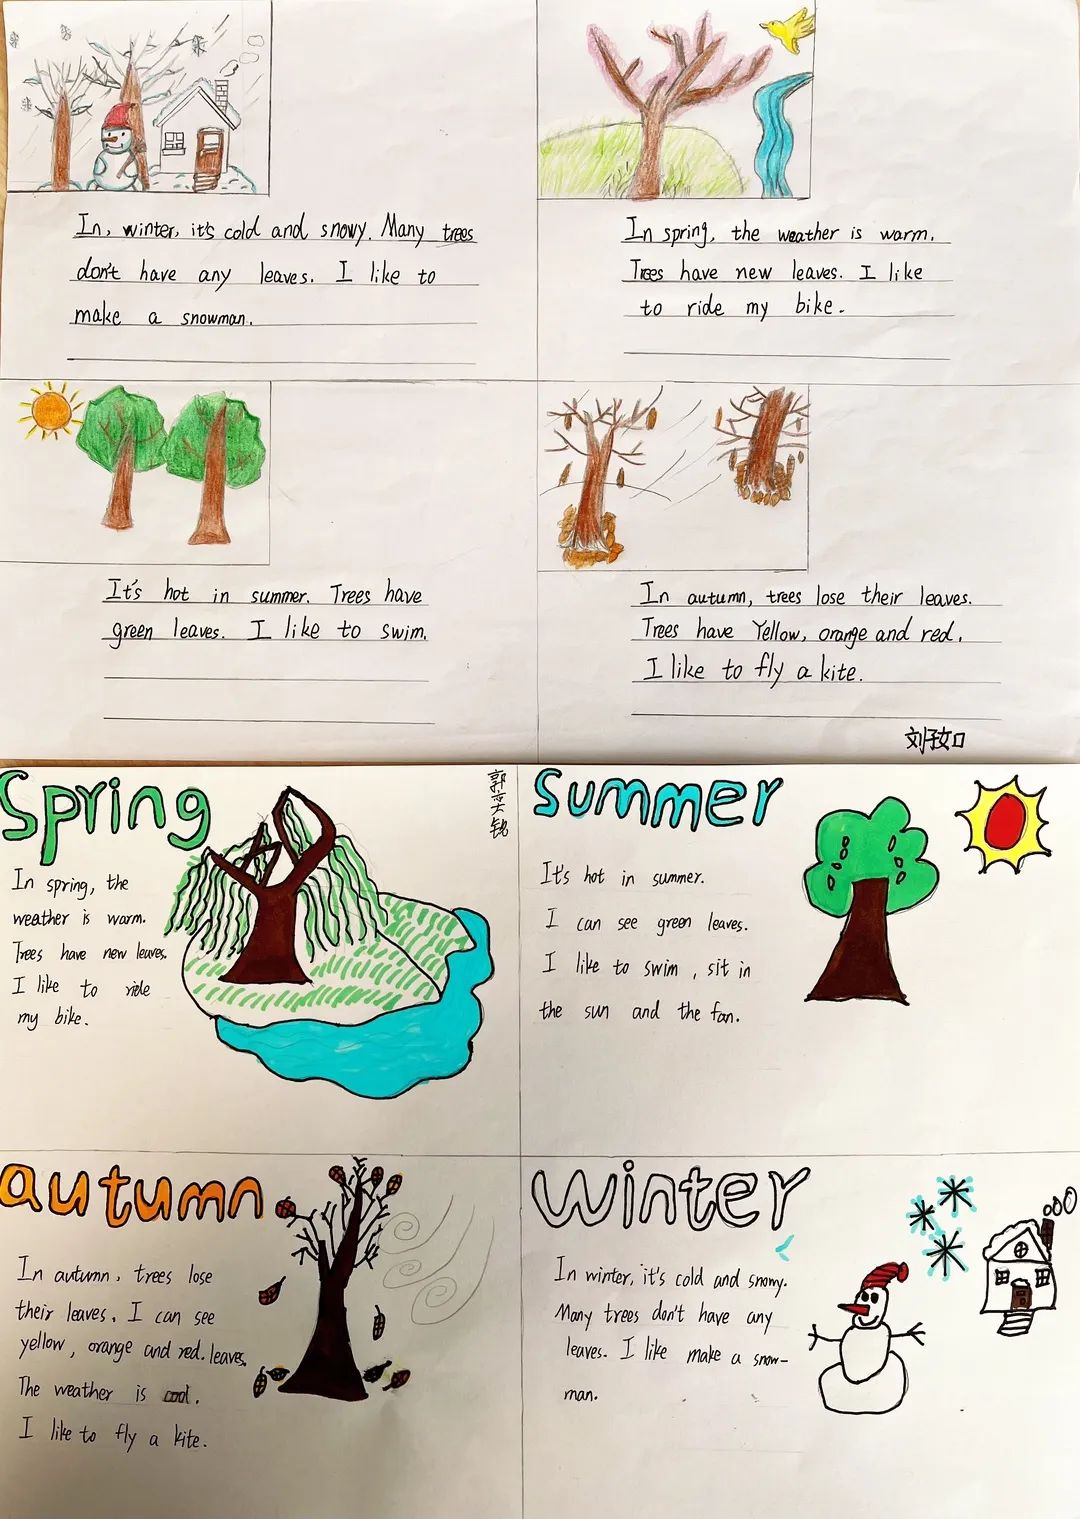 In, winter, it's cold and snowy. Many trees
don't have any leaves. I like to
make a snowman.
In spring, the weather is warm.
Trees have new leaves. I like
to ride my bike.
It's hot in summer. Trees have
green leaves. I like to swim.
In autumn, trees lose their leaves.
Trees have Yellow, orange and red.
I like to fly a kite.
Spring
In spring, the
weather is warm.
Trees have new leaves.
I like to ride
my bike.
Summer
It's hot in summer.
I can see green leaves.
I like to swim, sit in
the sun and the fan.
autumn
In autumn, trees lose
their leaves. I can see
yellow, orange and red. leaves.
The weather is cool.
I like to fly a kite.
winter
In winter, it's cold and snowy.
Many trees don't have any
leaves. I like make a snow-
man.